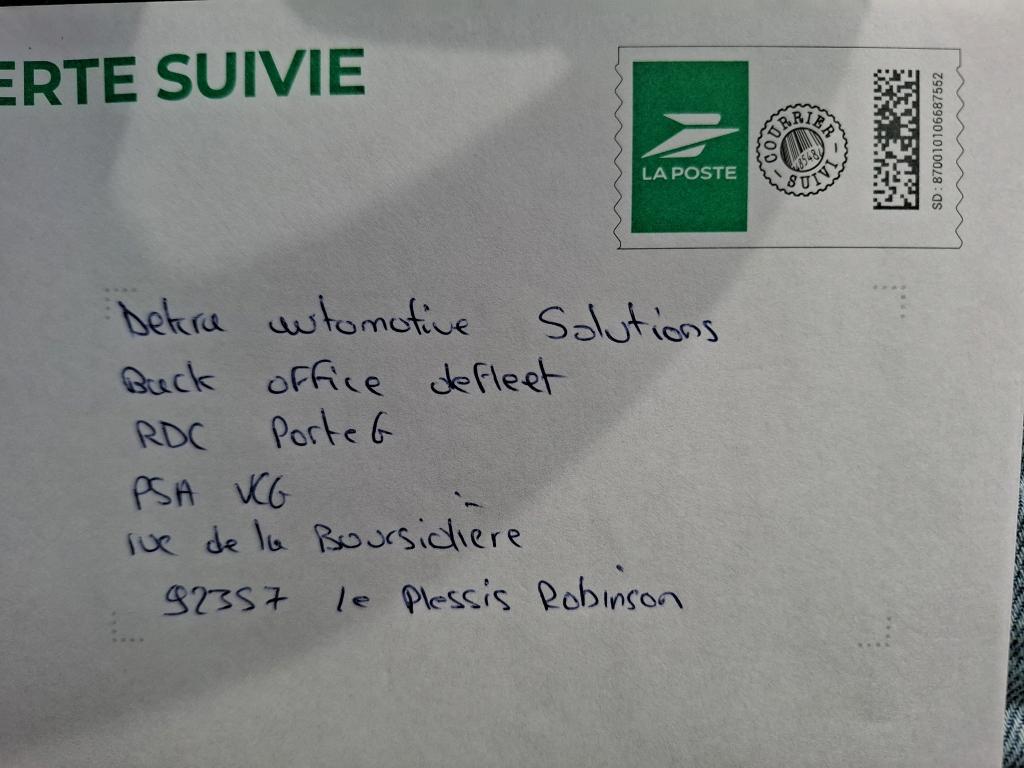 ERTE SUIVIE
LA POSTE
COURRIER
SUIVI
SD : 870010106687552
Dekra automotive Solutions
Back office defleet
RDC Porte G
PSA VCG
rue de la Boursidière
92357 le Plessis Robinson